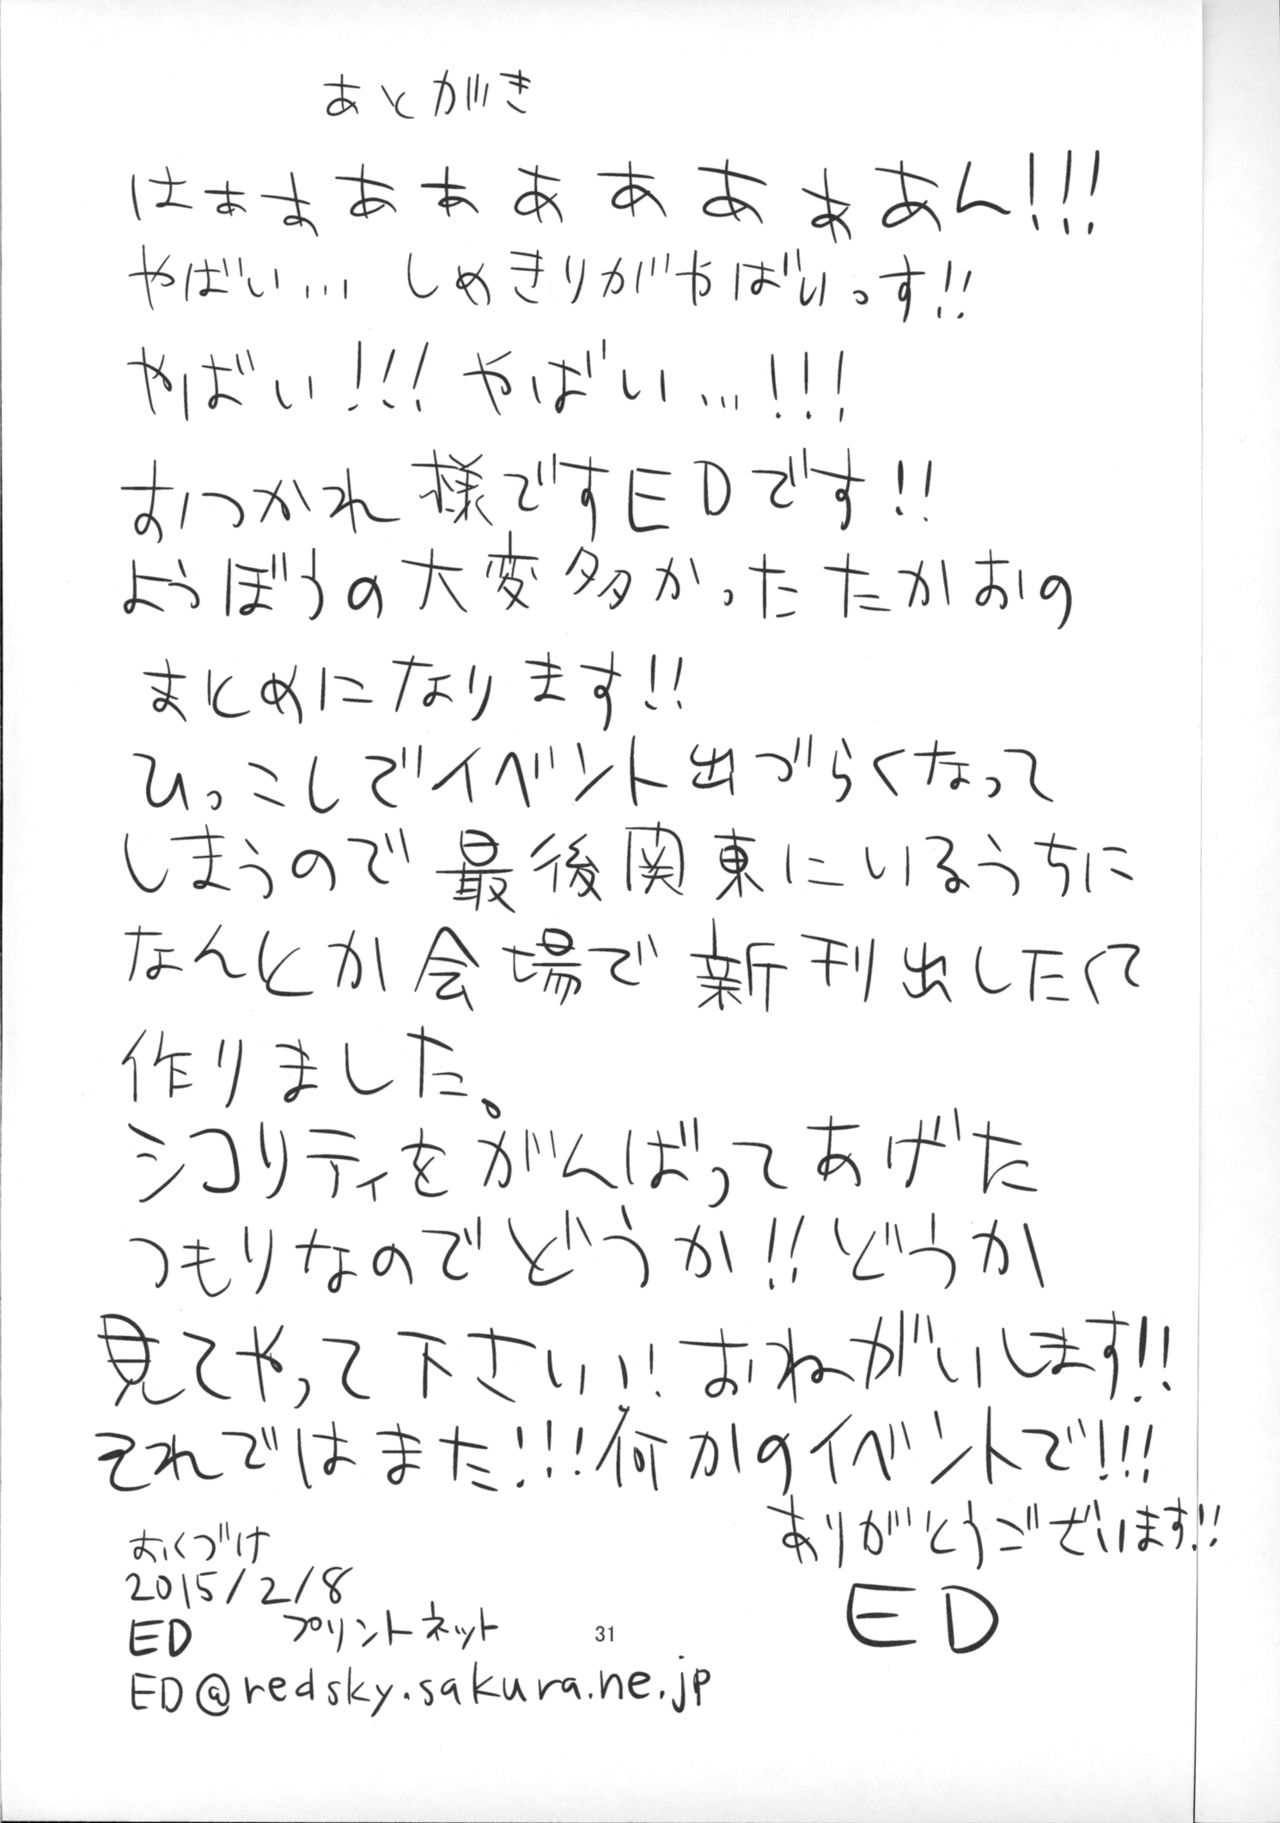 あとがき
はぁぁあぁぁああぁあん!!!
やばい… しめきりがやばいっす!!
やばい!!! やばい…!!!
おつかれ様ですEDです!!
ようぼうの大変多かったたかおの
まとめになります!!
ひっこしでイベント出づらくなって
しまうので最後関東にいるうちに
なんとか会場で新刊出したくて
作りました。
シコリティをがんばってあげた
つもりなのでどうか!! どうか
見てやって下さいい! おねがいします!!
それではまた!!! 何かのイベントで!!!
ありがとうございます!!
ED
おくづけ
2015/2/8
ED プリントネット
ED@redsky.sakura.ne.jp
31